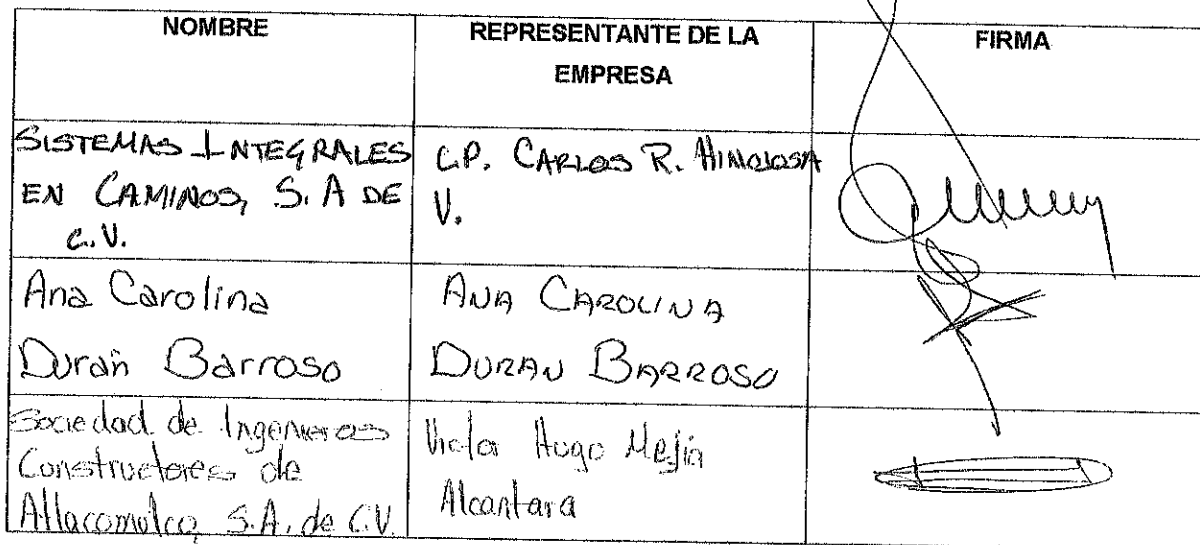 NOMBRE
REPRESENTANTE DE LA
EMPRESA
FIRMA
SISTEMAS INTEGRALES
EN CAMINOS, S. A DE
C.V.
C.P. CARLOS R. HINOJOSA
V.
Ana Carolina
Durán Barroso
ANA CAROLINA
DURAN BARROSO
Sociedad de Ingenieros
Constructores de
Atlacomulco, S.A. de C.V.
Victor Hugo Mejía
Alcantara